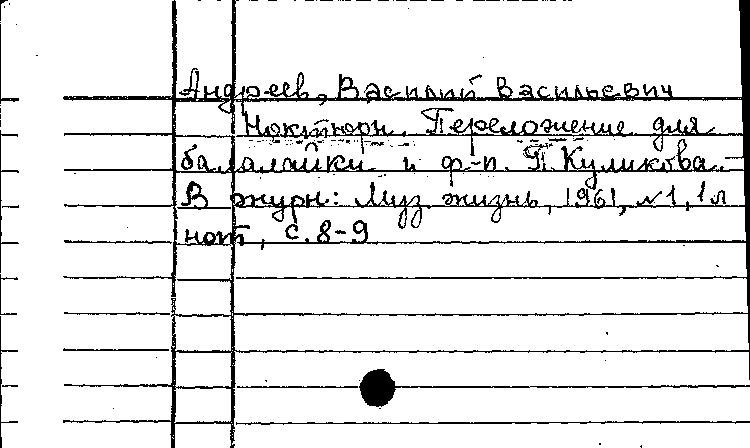 Андреев, Василий Васильевич
Ноктюрн. Переложение для
балалайки и ф-п. П. Куликова. –
В журн: Муз. жизнь, 1961, №1, 1 л
нот, с. 8-9